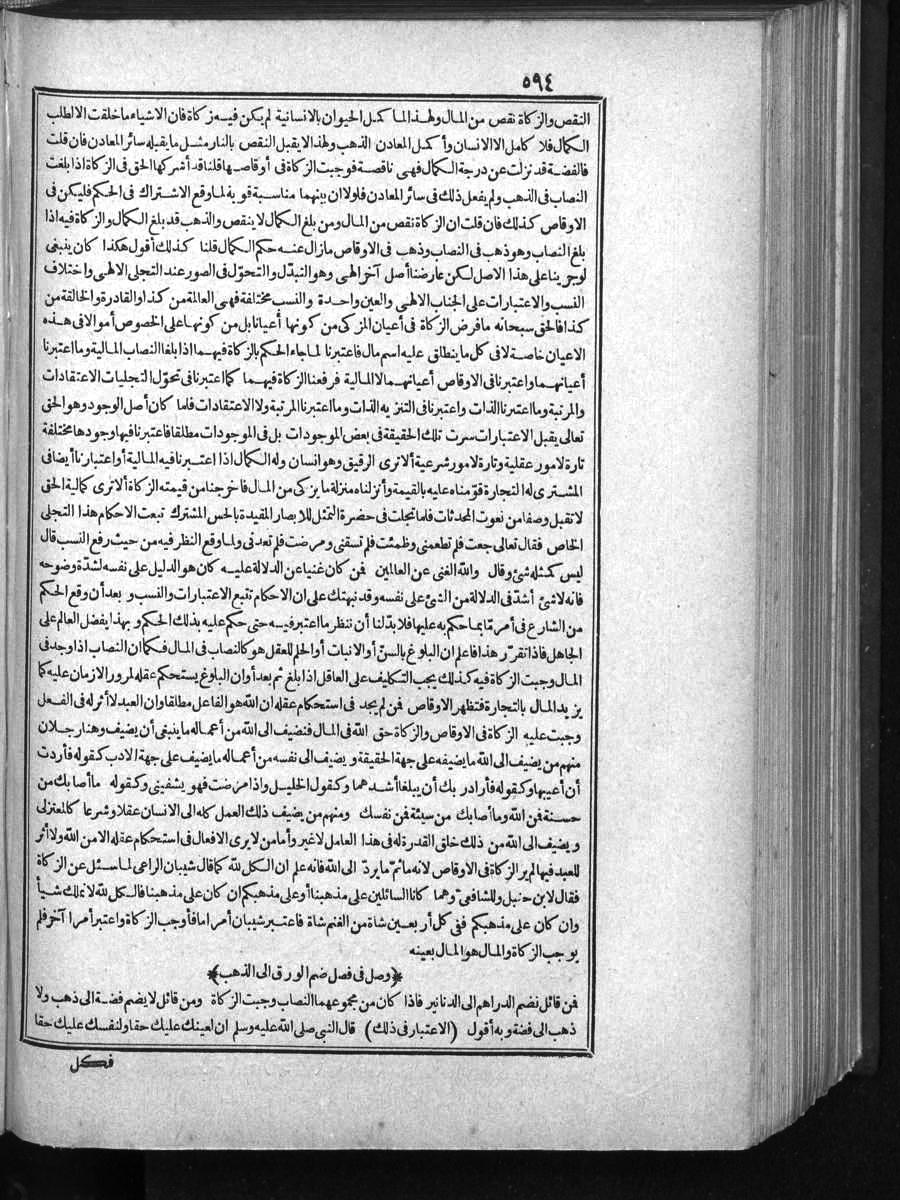 ٥٩٤
النقص والزكاة نقص من المال ولهذا لما كمل الحيوان بالانسانية لم يكن فيه زكاة فان الاشياء ما خلقت الا لطلب
الكمال فلا كامل الا الانسان وأكمل المعادن الذهب ولهذا لا يقبل النقص بالنار مثل ما يقبله سائر المعادن فان قلت
فالفضة قد نزلت عن درجة الكمال فهى ناقصة فوجبت الزكاة فى أوقاصها قلنا قد أشركها الحق فى الزكاة اذا بلغت
النصاب فى الذهب ولم يفعل ذلك فى سائر المعادن فلولا ان بينهما مناسبة قوية لما وقع الاشتراك فى الحكم فليكن فى
الاوقاص كذلك فان قلت ان الزكاة نقص من المال ومن بلغ الكمال لا ينقص والذهب قد بلغ الكمال والزكاة فيه اذا
بلغ النصاب وهو ذهب فى النصاب وذهب فى الاوقاص ما زال عنه حكم الكمال قلنا كذلك أقول هكذا كان ينبغى
لو جرينا على هذا الاصل لكن عارضنا أصل آخر الهى وهو التبدّل والتحوّل فى الصور عند التجلى الالهى واختلاف
النسب والاعتبارات على الجناب الالهى والعين واحدة والنسب مختلفة فهى العالمة من كذا والقادرة والخالقة من
كذا فالحق سبحانه ما فرض الزكاة فى أعيان المزكى من كونها أعيانا بل من كونها على الخصوص أموالا فى هذه
الاعيان خاصة لا فى كل ما ينطلق عليه اسم مال فاعتبرنا لما جاء الحكم بالزكاة فيهما اذا بلغا النصاب المالية وما اعتبرنا
أعيانهما واعتبرنا فى الاوقاص أعيانهما لا المالية فرفعنا الزكاة فيهما كما اعتبرنا فى تحوّل التجليات الاعتقادات
والمرتبة وما اعتبرنا الذات واعتبرنا فى التنزيه الذات وما اعتبرنا المرتبة ولا الاعتقادات فلما كان أصل الوجود وهو الحق
تعالى يقبل الاعتبارات سرت تلك الحقيقة فى بعض الموجودات بل فى الموجودات مطلقا فاعتبرنا فيها وجودها مختلفة
تارة لامور عقلية وتارة لامور شرعية ألا ترى الرقيق وهو انسان وله الكمال اذا اعتبرنا فيه المالية أو اعتبارنا أيضا فى
المشترى له التجارة قوّمناه عليه بالقيمة وأنزلناه منزلة ما يزكى من المال فأخرجنا من قيمته الزكاة ألا ترى كمالية الحق
لا تقبل وصفا من نعوت المحدثات فلما تجلت فى حضرة التمثل للابصار المقيدة بالحس المشترك تبعت الاحكام هذا التجلى
الخاص فقال تعالى جعت فلم تطعمنى وظمئت فلم تسقنى ومرضت فلم تعدنى ولما وقع النظر فيه من حيث رفع النسب قال
ليس كمثله شئ وقال والله الغنى عن العالمين فمن كان غنيا عن الدلالة عليه كان هو الدليل على نفسه لشدّة وضوحه
فانه لا شئ أشدّ فى الدلالة من الشئ على نفسه وقد نبهتك على ان الاحكام تتبع الاعتبارات والنسب و بعد أن وقع الحكم
من الشارع فى أمر مّا بما حكم به عليها فلا بدّ لنا أن ننظر ما اعتبر فيه حتى حكم عليه بذلك الحكم و بهذا يفضل العالم على
الجاهل فاذا تقرّر هذا فاعلم ان البلوغ بالسنّ أو الانبات أو الحلم للعقل هو كالنصاب فى المال فكما ان النصاب اذا وجد فى
المال وجبت الزكاة فيه كذلك يجب التكليف على العاقل اذا بلغ ثم بعد أوان البلوغ يستحكم عقله لمرور الازمان عليه كما
يزيد المال بالتجارة فتظهر الاوقاص فمن لم يجد فى استحكام عقله ان الله هو الفاعل مطلقا وان العبد لا أثر له فى الفعل
وجبت عليه الزكاة فى الاوقاص والزكاة حق الله فى المال فنضيف الى الله من أعماله ما ينبغى أن يضيف وهنا رجلان
منهم من يضيف الى الله ما يضيفه على جهة الحقيقة و يضيف الى نفسه من أعماله ما يضيف على جهة الادب كقوله فأردت
أن أعيبها وكقوله فأراد ربك أن يبلغا أشدهما وكقول الخليل واذا مرضت فهو يشفينى وكقوله ما أصابك من
حسنة فمن الله وما أصابك من سيئة فمن نفسك ومنهم من يضيف ذلك العمل كله الى الانسان عقلا وشرعا كالمعتزلى
و يضيف الى الله من ذلك خلق القدرة له فى هذا العامل لا غير وأما من لا يرى الافعال فى استحكام عقله الا من الله ولا أثر
للعبد فيها لم ير الزكاة فى الاوقاص لانه ما ثمّ ما يردّ الى الله فانه علم ان الكل لله كما قال شيبان الراعى لما سئل عن الزكاة
فقال لابن حنبل وللشافعى وهما كانا السائلين على مذهبنا أو على مذهبكم ان كان على مذهبنا فالكل لله لا نملك شيأ
وان كان على مذهبكم ففى كل أربعين شاة من الغنم شاة فاعتبر شيبان أمرا ما فأوجب الزكاة واعتبر أمرا آخر فلم
يوجب الزكاة والمال هو المال بعينه
﴿وصل فى فصل ضم الورق الى الذهب﴾
فمن قائل نضم الدراهم الى الدنانير فاذا كان من مجموعهما النصاب وجبت الزكاة ومن قائل لا يضم فضة الى ذهب ولا
ذهب الى فضة وبه أقول (الاعتبار فى ذلك) قال النبى صلى الله عليه وسلم ان لعينك عليك حقا ولنفسك عليك حقا
فكل